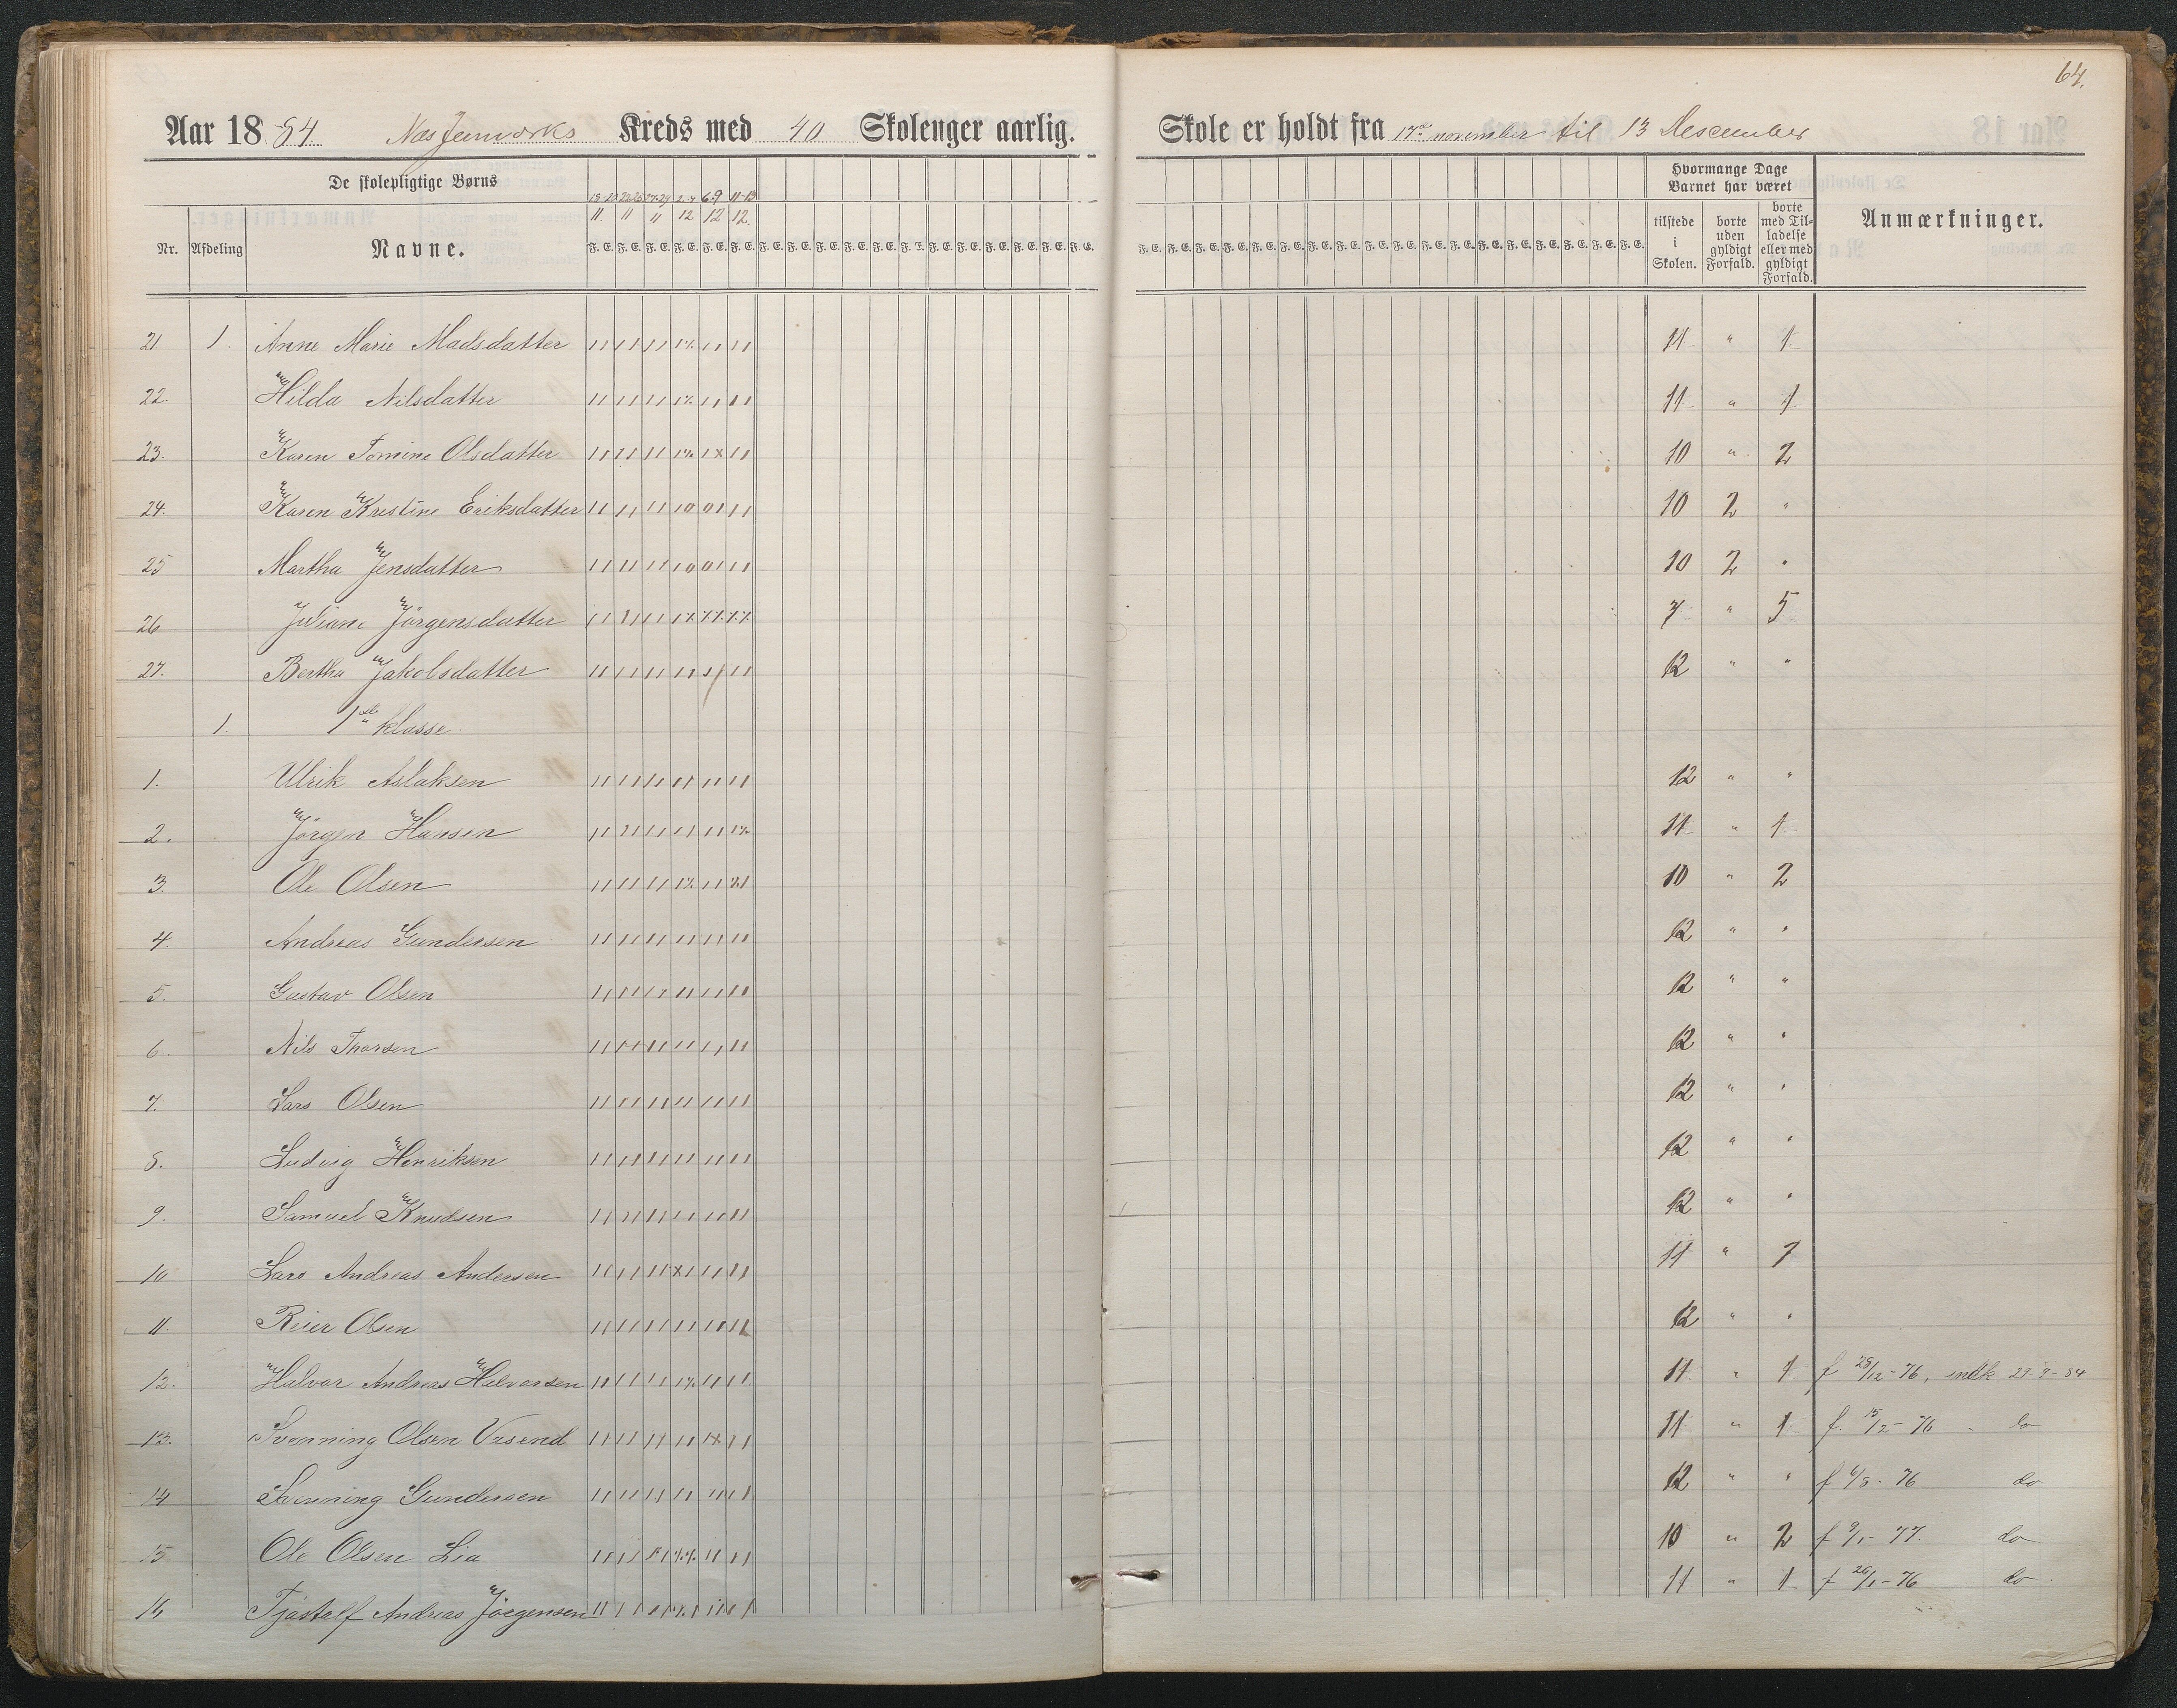 64.
Aar 1884 Nes Jernværks Kreds med 40 Skolenger aarlig. Skole er holdt fra 17de november til 13 Descember
De skolepligtige Børns
Nr. Afdeling Navne.
Hvormange Dage Barnet har været
tilstede i Skolen. borte uden gyldigt Forfald. borte med Tilladelse eller med gyldigt Forfald. Anmærkninger.
11 11 11 12 12 12
21. 1. Anne Marie Madsdatter 11 " 1
22. Hilda Nilsdatter 11 " 1
23. Karen Tomine Olsdatter 10 " 2
24. Karen Kristine Eriksdatter 10 2 "
25 Martha Jensdatter 10 2 "
26 Juliane Jörgensdatter 7 " 5
27. Bertha Jakobsdatter 12 " "
1. 1ste klasse
1. Ulrik Aslaksen 12 " "
2. Jörgen Hansen 11 " 1
3. Ole Olsen 10 " 2
4. Andreas Gundersen 12 " "
5. Gustav Olsen 12 " "
6. Nils Thorsen 12 " "
7. Lars Olsen 12 " "
8. Ludvig Henriksen 12 " "
9. Samuel Knudsen 12 " "
10 Lars Andreas Andersen 11 " 1
11. Reier Olsen 12 " "
12. Halvor Andreas Halvorsen 11 " 1 f 28/12-76, indk 29-9-84
13. Svenning Olsen 11 " 1 f. 15/2-76 do
14 Svenning Gundersen 12 " " f 6/8-76 do
15 Ole Olsen Lia 10 " 2 f 9/1-77. do
16 Tjöstolf Andreas Jörgensen 11 " 1 f 26/1-76 do